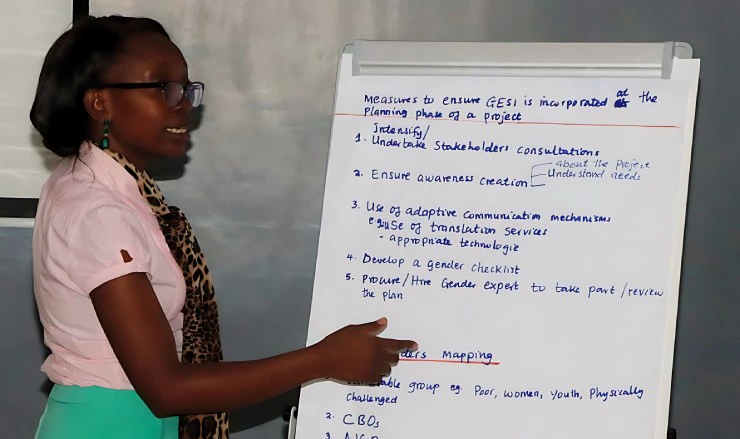 Measures to ensure GESI is incorporated at the
Planning phase of a project
Intensify/
1. Undertake Stakeholders consultations
2. Ensure awareness creation
about the Project
Understand needs
3. Use of adaptive communication mechanisms
e.g. Use of translation services
- appropriate technologie
4. Develop a gender checklist
5. Procure/Hire Gender expert to take part/review
the plan
Mapping
group eg. Poor, women, Youth, Physically
challenged
2. CBOs
3.